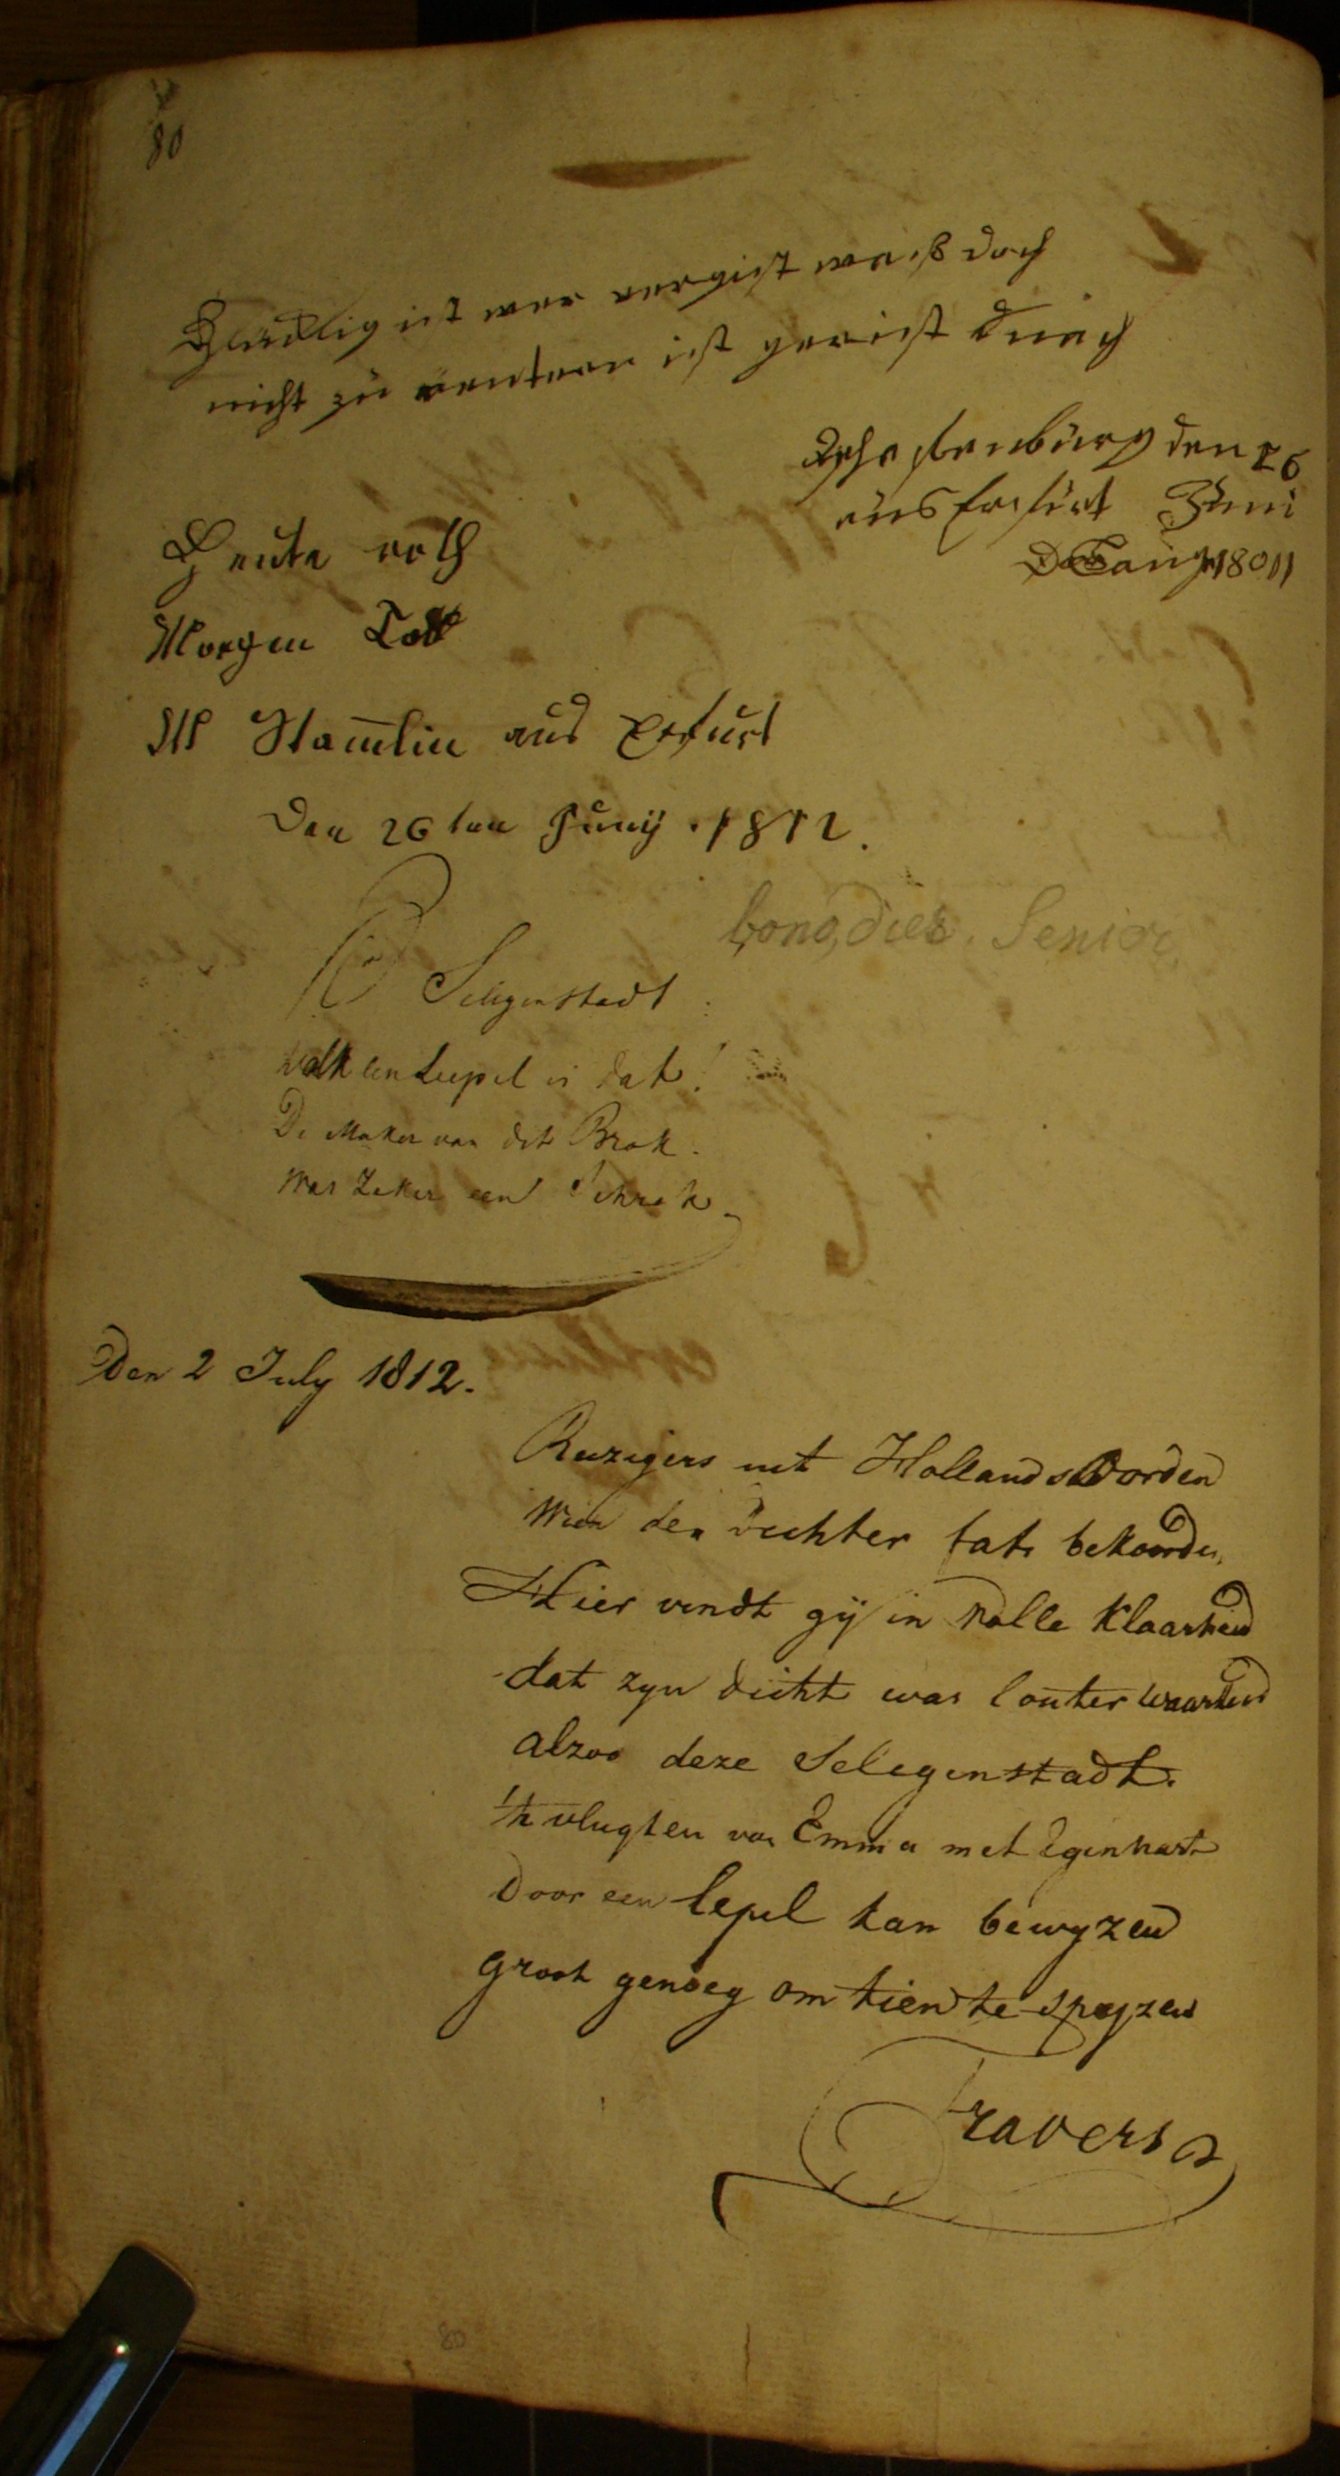 80
Glücklig ist wer vergist waß doch
nicht zu entern ist
Aschaffenburg den 26
aus Erfurt Juni
Heute roth
Morgen Tod
M Stam̅lin aus Erfurt
Den 26ten Juny . 1812.
Senior
Seligenstadt
Welk een Leepel is dat!
De Maker van dit Brok.
Was Zeker een Schrok
Den 2 July 1812.
Reizigers uit Hollands Oorden
Wien den dichter Cats bekoorden,
Hier vindt gy in volle Klaarheid
dat zyn dicht was louter waarheid
alzoo deze Seligenstadt.
't vlugten van Emma met Eginhart
Door een lepel kan bewyzen
groot genoeg om tien te spyzen
Travers
80